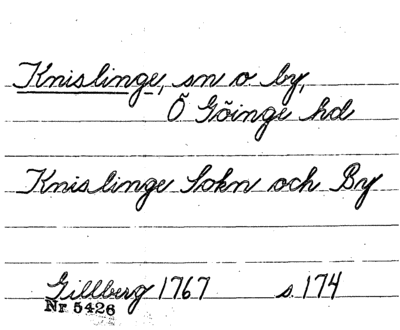 Knislinge, sn o by,
Ö Göinge hd
Knislinge Sokn och By
Gillberg 1767 s. 174
Nr 5426